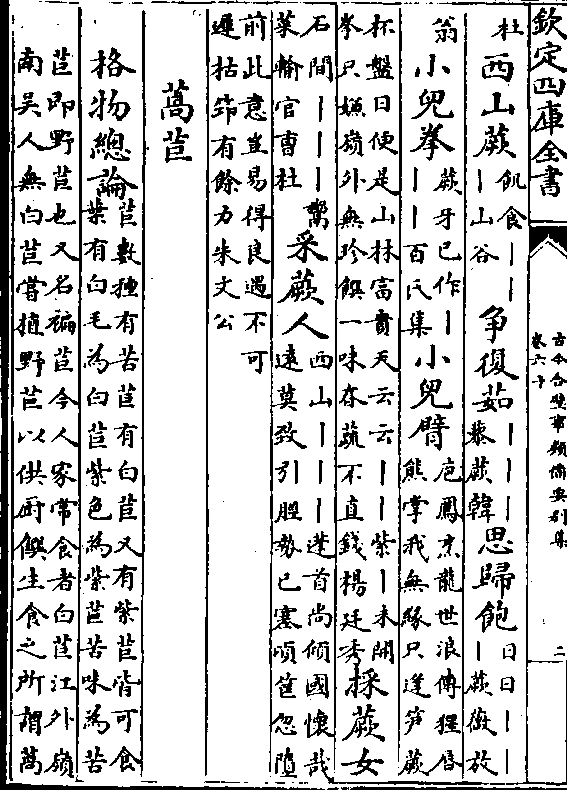 欽定四庫全書
古今合璧事類備要別集
卷六十
二
杜 西山蕨 飢食｜｜｜山谷 爭復茹 ｜｜｜藜蕨韓 思歸飽 日日｜｜｜蕨薇放
翁 小兒拳 蕨牙已作｜｜｜百氏集 小兒臂 庖鳳烹龍世浪傳猩唇熊掌我無緣只逢笋蕨
杯盤日便是山林富貴天云云｜｜紫｜未開
拳只嫌嶺外無珍饌一味春蔬不直錢楊廷秀 採蕨女
石間｜｜｜鸞菜輸官曹杜 采蕨人 西山｜｜｜逢首尚傾國懷哉遠莫致引脰勢已蹇頃筐忽墮
前此意豈易得良遇不可
遲枯筇有餘力朱文公
萵苣
格物總論 苣數種有苦苣有白苣又有紫苣皆可食葉有白毛為白苣紫色為紫苣苦味為苦
苣即野苣也又名褊苣今人家常食者白苣江外嶺
南吳人無白苣嘗植野苣以供厨饌生食之所謂萵